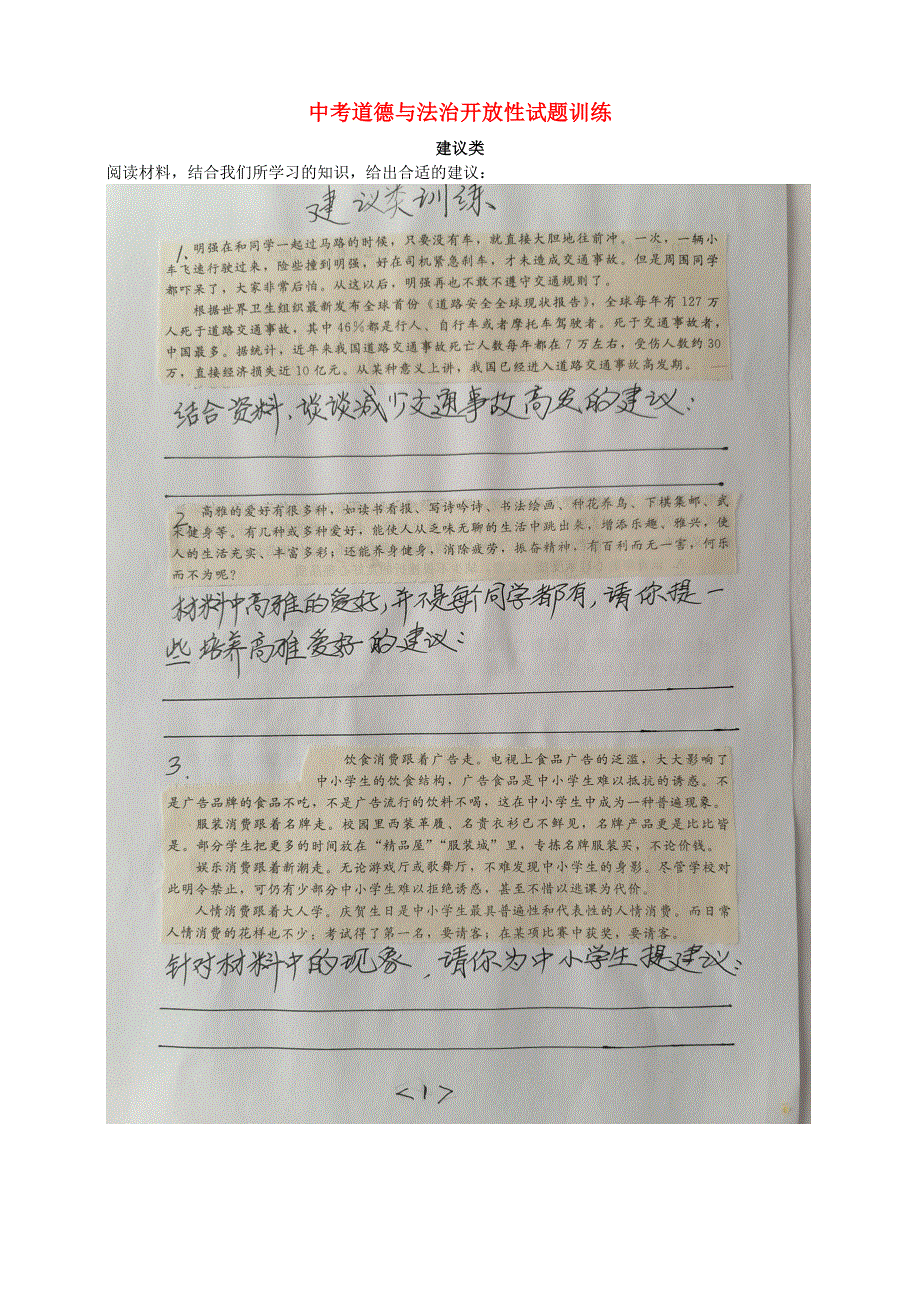 中考道德与法治开放性试题训练
建议类
阅读材料，结合我们所学习的知识，给出合适的建议：
建议类训练
1、明强在和同学一起过马路的时候，只要没有车，就直接大胆地往前冲。一次，一辆小
车飞速行驶过来，险些撞到明强，好在司机紧急刹车，才未造成交通事故。但是周围同学
都吓呆了，大家非常后怕。从这以后，明强再也不敢不遵守交通规则了。
根据世界卫生组织最新发布全球首份《道路安全全球现状报告》，全球每年有127万
人死于道路交通事故，其中46%都是行人、自行车或者摩托车驾驶者。死于交通事故者，
中国最多。据统计，近年来我国道路交通事故死亡人数每年都在7万左右，受伤人数约30
万，直接经济损失近10亿元。从某种意义上讲，我国已经进入道路交通事故高发期。
结合资料，谈谈减少交通事故高发的建议：
2、高雅的爱好有很多种，如读书看报、写诗吟诗、书法绘画、种花养鸟、下棋集邮、武
术健身等。有几种或多种爱好，能使人从乏味无聊的生活中跳出来，增添乐趣、雅兴，使
人的生活充实、丰富多彩；还能养身健身，消除疲劳，振奋精神，有百利而无一害，何乐
而不为呢？
材料中高雅的爱好，并不是每个同学都有，请你提一
些培养高雅爱好的建议：
3、饮食消费跟着广告走。电视上食品广告的泛滥，大大影响了
中小学生的饮食结构，广告食品是中小学生难以抵抗的诱惑。不
是广告品牌的食品不吃，不是广告流行的饮料不喝，这在中小学生中成为一种普遍现象。
服装消费跟着名牌走。校园里西装革履、名贵衣衫已不鲜见，名牌产品更是比比皆
是。部分学生把更多的时间放在“精品屋”“服装城”里，专拣名牌服装买，不论价钱。
娱乐消费跟着新潮走。无论游戏厅或歌舞厅，不难发现中小学生的身影。尽管学校对
此明令禁止，可仍有少部分中小学生难以拒绝诱惑，甚至不惜以逃课为代价。
人情消费跟着大人学。庆贺生日是中小学生最具普遍性和代表性的人情消费。而日常
人情消费的花样也不少：考试得了第一名，要请客；在某项比赛中获奖，要请客。
针对材料中的现象，请你为中小学生提建议：
<1>